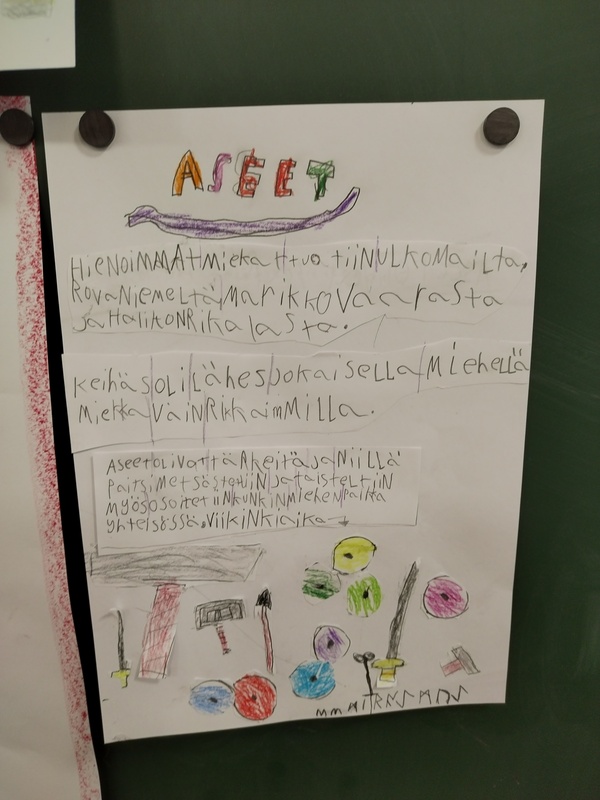 ASEET
HieNOiMMAtMiekattuotiinULKOMAiLta,
ROVaNieMeLtäMaRikkOVaaRaSta
jaHaliKONRiKaLaSta.
KeihäSOLiLäheSJOKaiSeLLaMieheLLä
MiekkaVaiNRiKKaiMMiLLa.
ASeetOLiVattäRKeitäjaNiiLLä
PaitSiMetSäStettiiNjataiSteLtiiN
MyöSOSOitettiiNKuNKiNMieheNPaiKa
yhteiSöSSä.ViiKiNKiaiKa